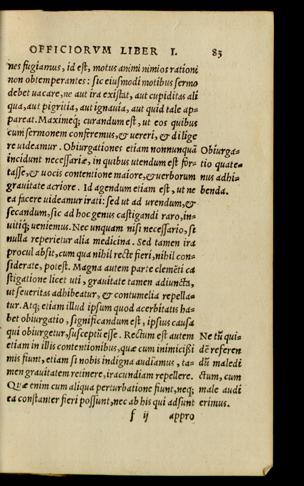 OFFICIORVM LIBER I. 83
nes fugiamus, id est, motus animi nimios rationi
non obtemperantes: sic eiusmodi motibus sermo
debet uacare, ne aut ira existat, aut cupiditas ali
qua, aut pigritia, aut ignauia, aut quid tale ap=
pareat. Maximeq; curandum est, ut eos quibus
cum sermonem conferemus, & uereri, & dilige
re uideamur. Obiurgationes etiam nonnunquā
incidunt necessariæ, in quibus utendum est for=
tasse, & uocis contentione maiore, & uerborum
grauitate acriore. Id agendum etiam est, ut ne
ea facere uideamur irati: sed ut ad urendum, &
secandum, sic ad hoc genus castigandi raro, in=
uitiq; ueniemus. Nec unquam nisi necessario, si
nulla reperietur alia medicina. Sed tamen ira
procul absit, cum qua nihil recte fieri, nihil con=
siderate, potest. Magna autem parte clemēti ca
stigatione licet uti, grauitate tamen adiuncta,
ut seueritas adhibeatur, & contumelia repella=
tur. Atq; etiam illud ipsum quod acerbitatis ha=
bet obiurgatio, significandum est, ipsius causa
qui obiurgetur, susceptū esse. Rectum est autem
etiam in illis contentionibus, quæ cum inimicissi
mis fiunt, etiam si nobis indigna audiamus, ta=
men grauitatem retinere, iracundiam repellere.
Quæ enim cum aliqua perturbatione fiunt, neq;
ea constanter fieri possunt, nec ab his qui adsunt
f ij appro
Obiurga=
tio quate=
nus adhi=
benda.
Ne tū qui=
dē referen
dū maledi
ctum, cum
male audi
erimus.